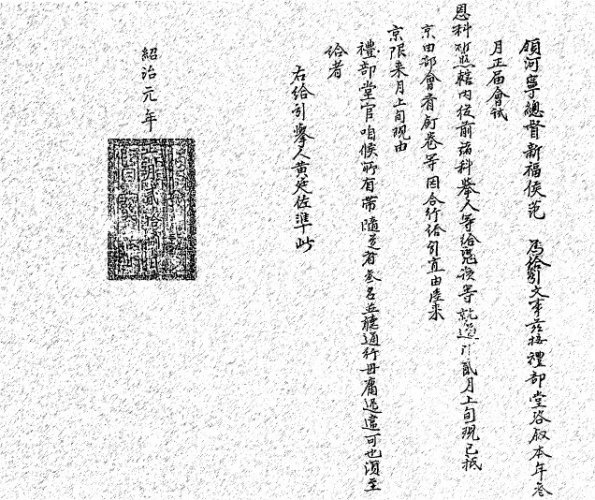 領河寧總督新福侯范 為給引文事茲接禮部堂咨叙本年叁
月正届會試
恩科 轄內從前諸科舉人等給憑換等就 貳月上旬現已抵
京由部會者 卷等因合行給引宜由陸來
京限來月上旬現由
禮部堂官咱候所有帶隨 者叁名並聽通行毋庸遏遽可也須至
給者
右給引舉人黃廷佐準此
紹治元年
正 朔貳拾